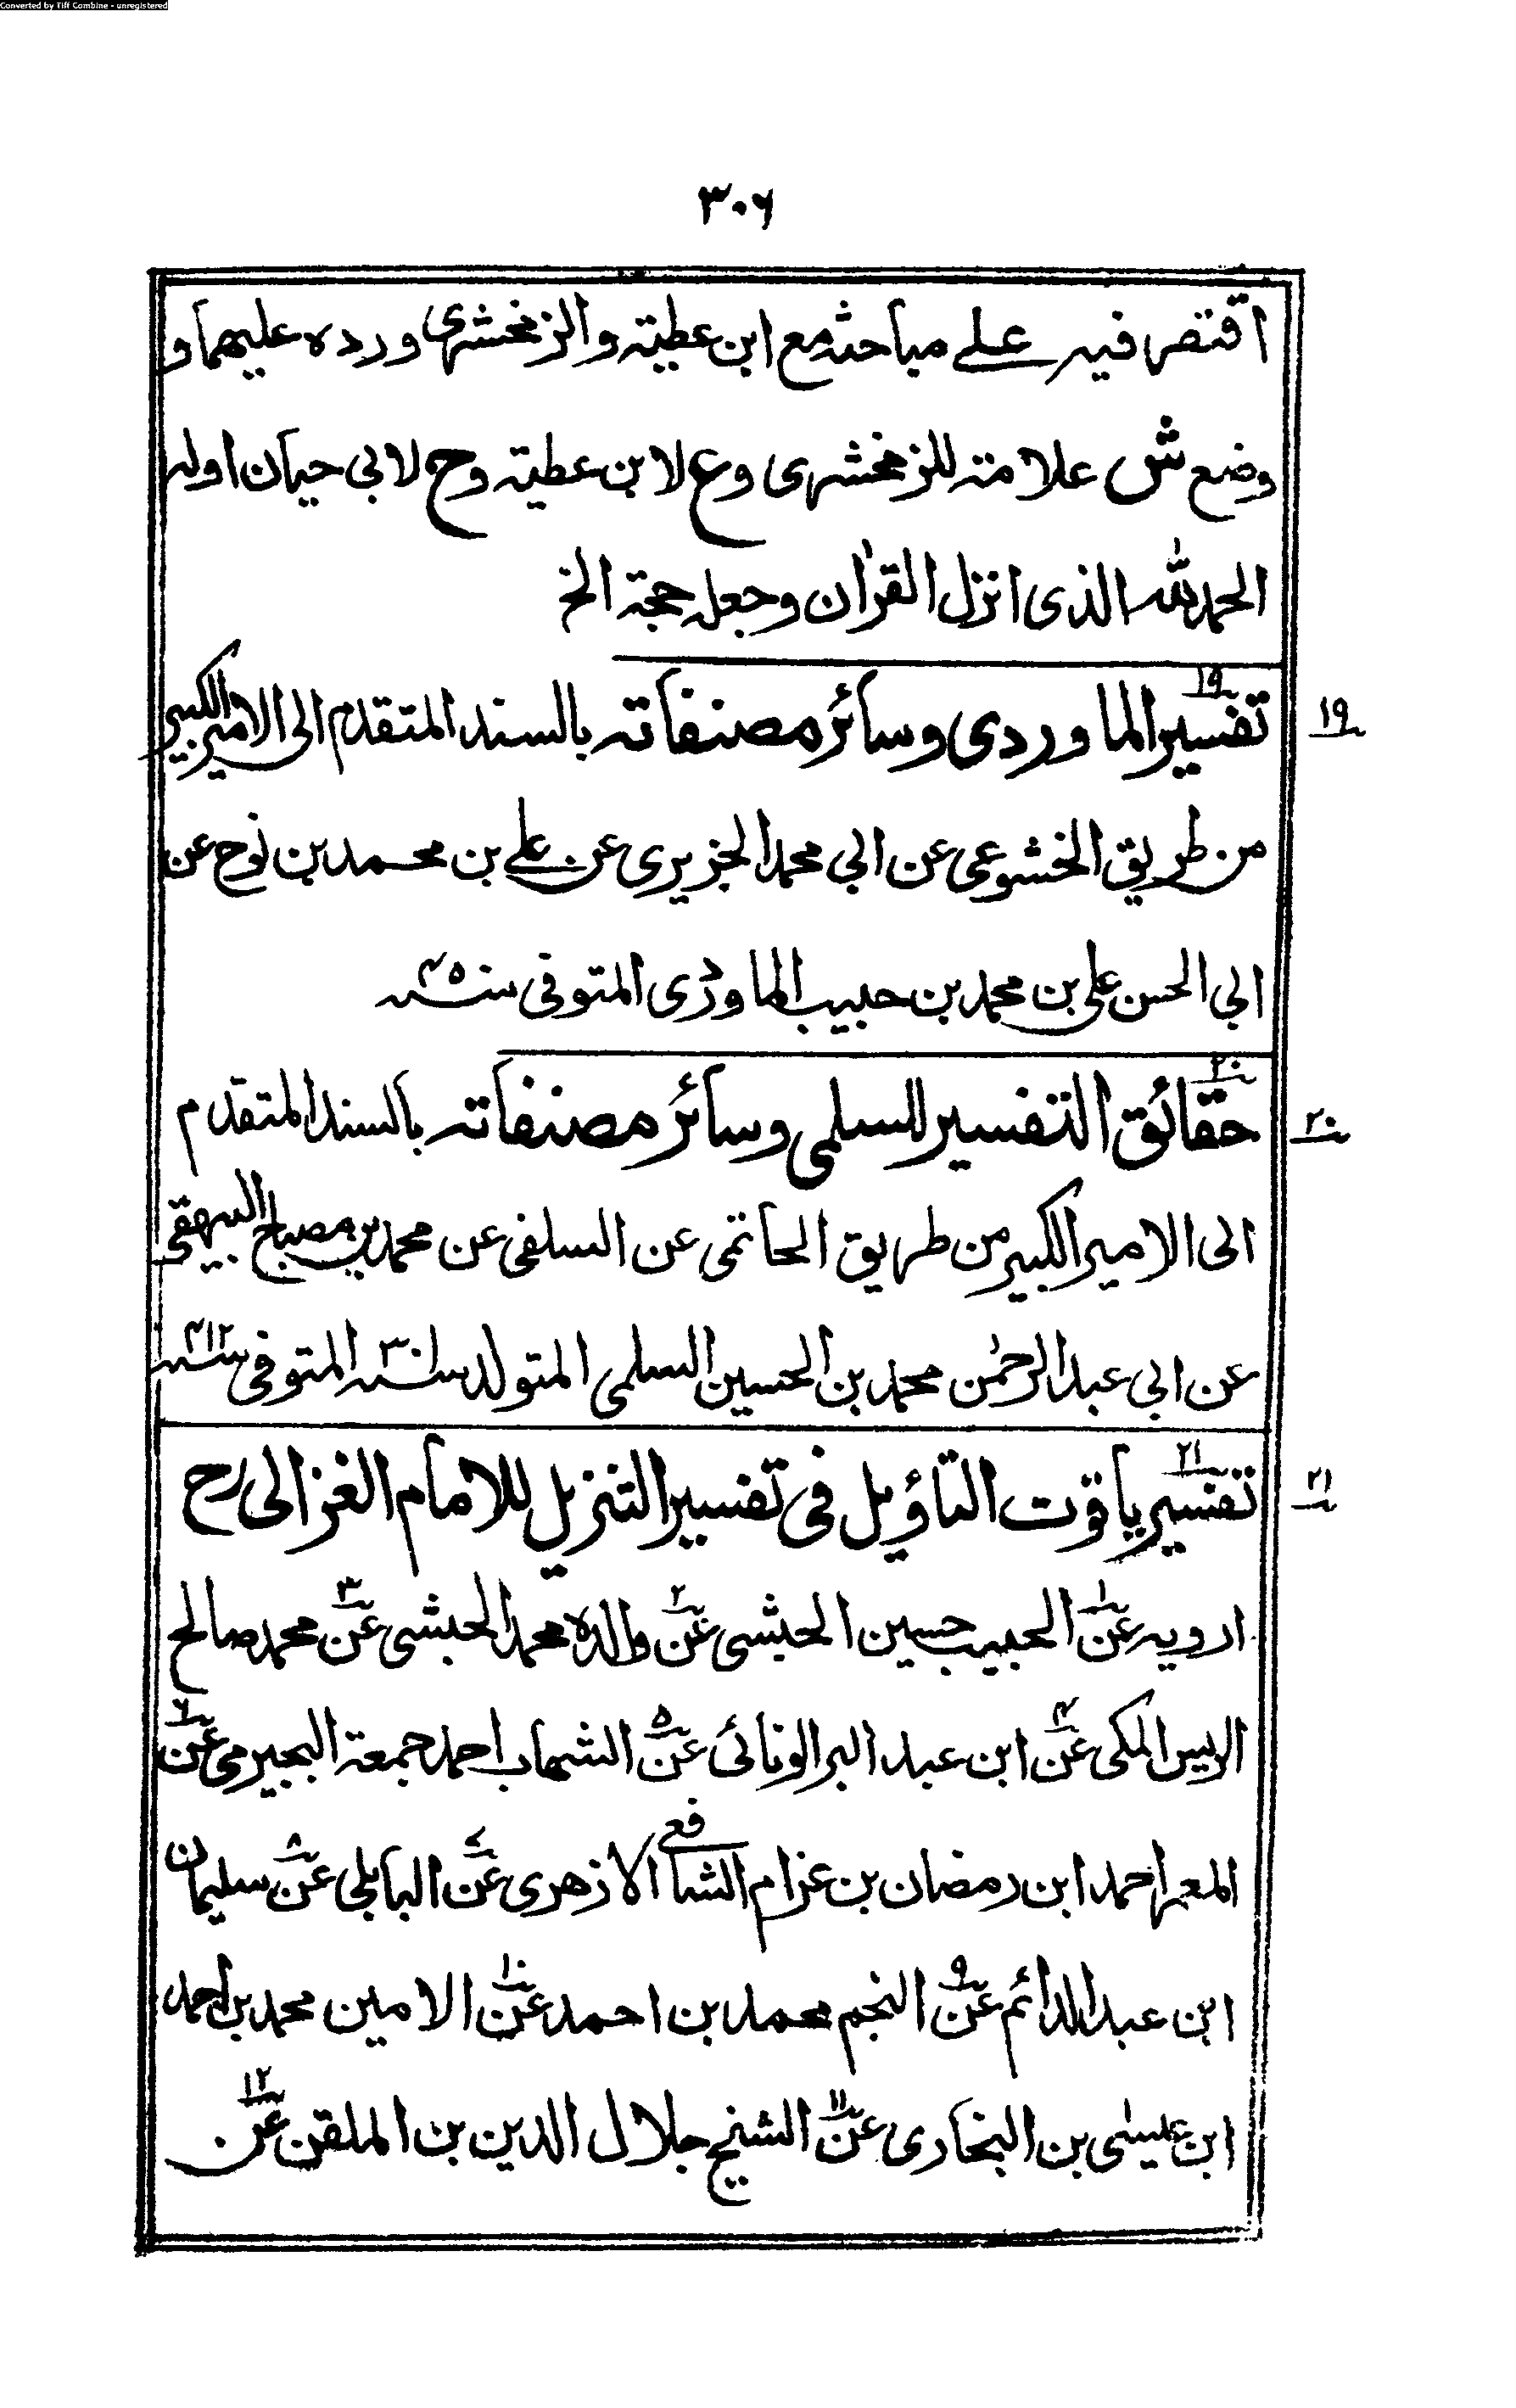 Converted by Tiff Combine - unregistered
۳۰۶
اقتصر فيه على مباحثه مع ابن عطية والزمخشرى ورده عليهما و
وضع ش علامة للزمخشرى وع لابن عطية وح لابي حيان اوله
الحمد لله الذى انزل القرآن وجعله حجة الخ
۱۹
تفسير الماوردى وسائر مصنفاته بالسند المتقدم الى الامير الكبير
۱۹
من طريق الخشوعى عن ابي محمد الجزيرى عن على بن محمد بن نوح عن
ابي الحسن على بن محمد بن حبيب الماوردى المتوفى سنة ۴۵
۲۰
حقائق التفسير للسلمى وسائر مصنفاته بالسند المتقدم
۲۰
الى الامير الكبير من طريق الحاتمى عن السلفى عن محمد بن مصباح البيهقى
عن ابي عبد الرحمٰن محمد بن الحسين السلمى المتولد سنة ۳۰ المتوفى سنة ۴۱۲
۲۱
تفسير ياقوت التأويل فى تفسير التنزيل للامام الغزالى رح
۲۱
ارويه عن۱ الحبيب حسين الحبشى عن۲ والده محمد الحبشى عن۳ محمد صالح
الريس المكى عن۴ ابن عبد البر الونائى عن۵ الشهاب احمد جمعة البجيرمى عن۶
المعمر احمد ابن رمضان بن عزام الشافعى الازهرى عن۷ البابلى عن۸ سليمان
ابن عبد الدائم عن۹ النجم محمد بن احمد عن۱۰ الامين محمد بن احمد
ابن عيسى بن البخارى عن۱۱ الشيخ جلال الدين بن الملقن عن۱۲